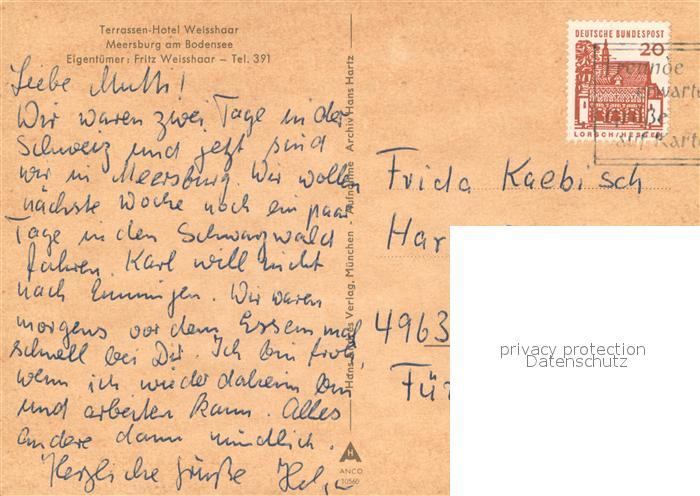 Terrassen-Hotel Weisshaar
Meersburg am Bodensee
Eigentümer: Fritz Weisshaar — Tel. 391
Liebe Mutti!
Wir waren zwei Tage in der
Schweiz und jetzt sind
wir in Meersburg. Wir wollen
nächste Woche noch ein paar
Tage in den Schwarzwald
fahren. Karl will nicht
nach Emmingen. Wir waren
morgens vor dem Essen mal
schnell bei Dir. Ich bin froh,
wenn ich wieder daheim bin
und arbeiten kann. Alles
andere dann mündlich.
Herzliche Grüße
Hans Verlag, München - Aufnahme Archiv Hans Hartz
ANCO
10560
DEUTSCHE BUNDESPOST
20
LORSCH/HESSEN
auf Karte
Frida Kaebisch
Har
4963
Für
privacy protection
Datenschutz